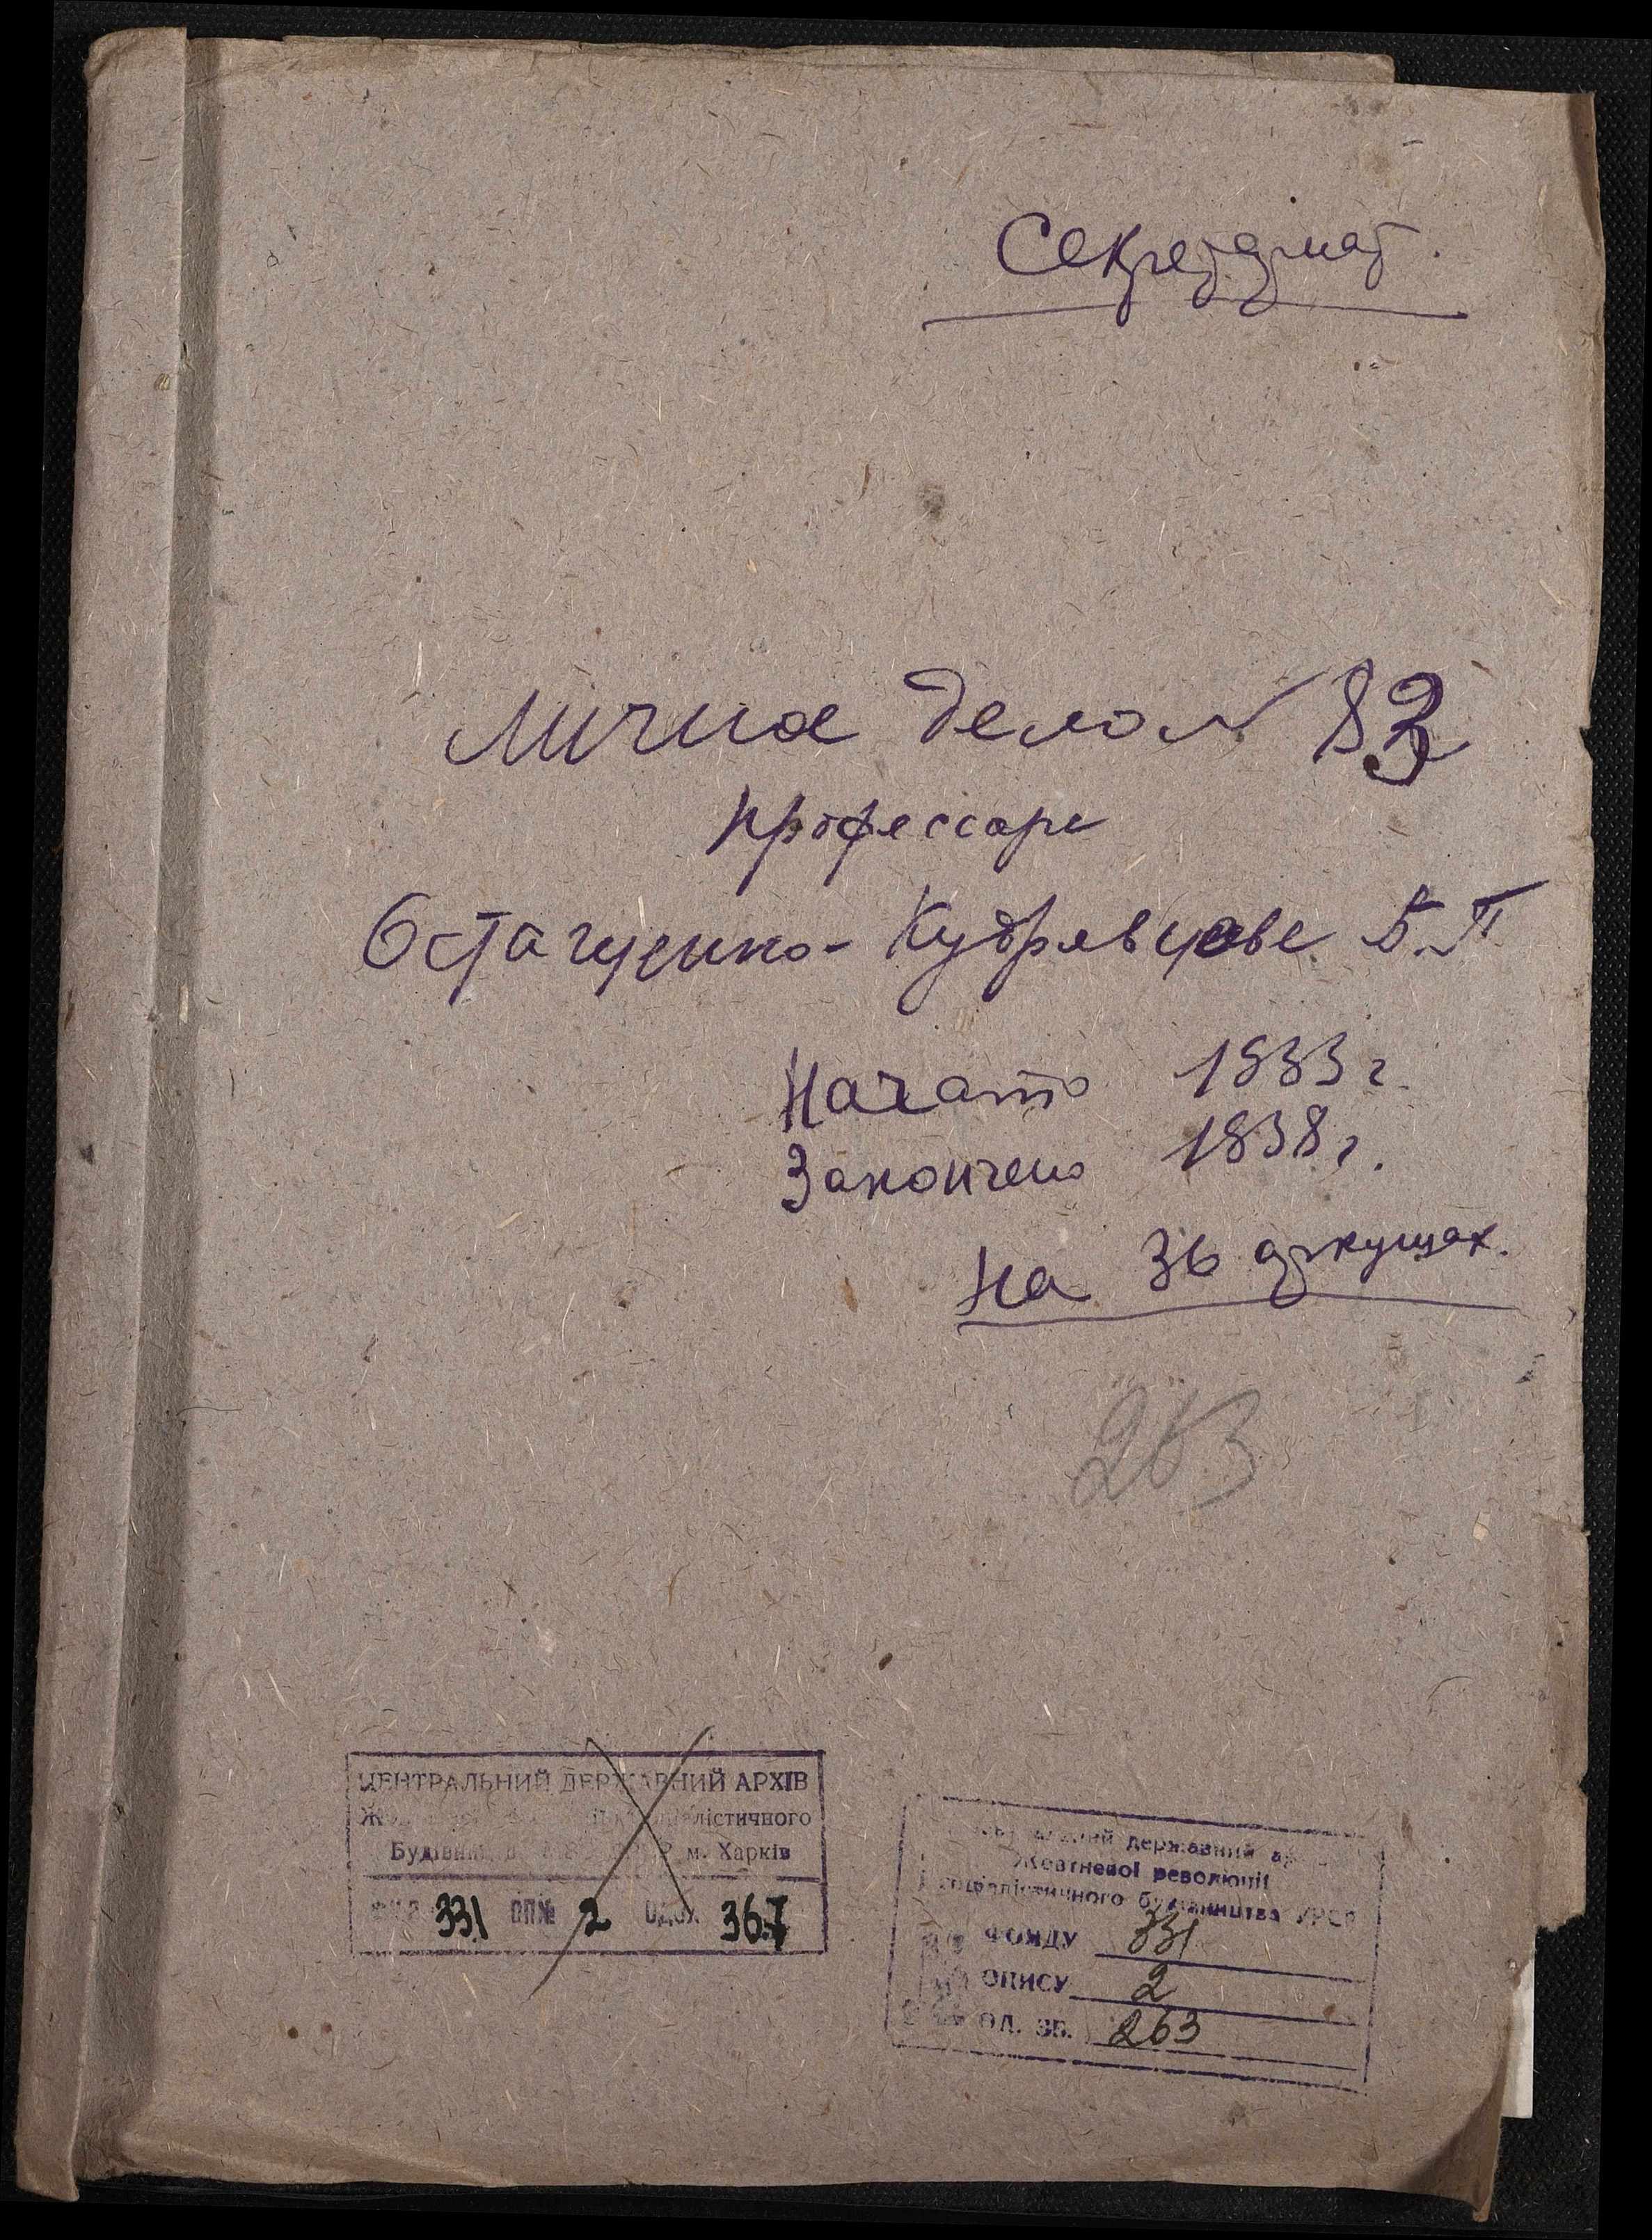 Секретариат.
Личное дело № 83
профессора
Остащенко-Кудрявцева Б.П
Начато 1933 г.
Закончено 1938 г.
На 36 аркущах.
263
ЦЕНТРАЛЬНИЙ ДЕРЖАВНИЙ АРХІВ
м. Харків
331 ОП№ 2 367
державний
Жовтневої революції
соціалістичного будівництва УРСР
ФОНДУ 331
ОПИСУ 2
ОД. ЗБ. 263